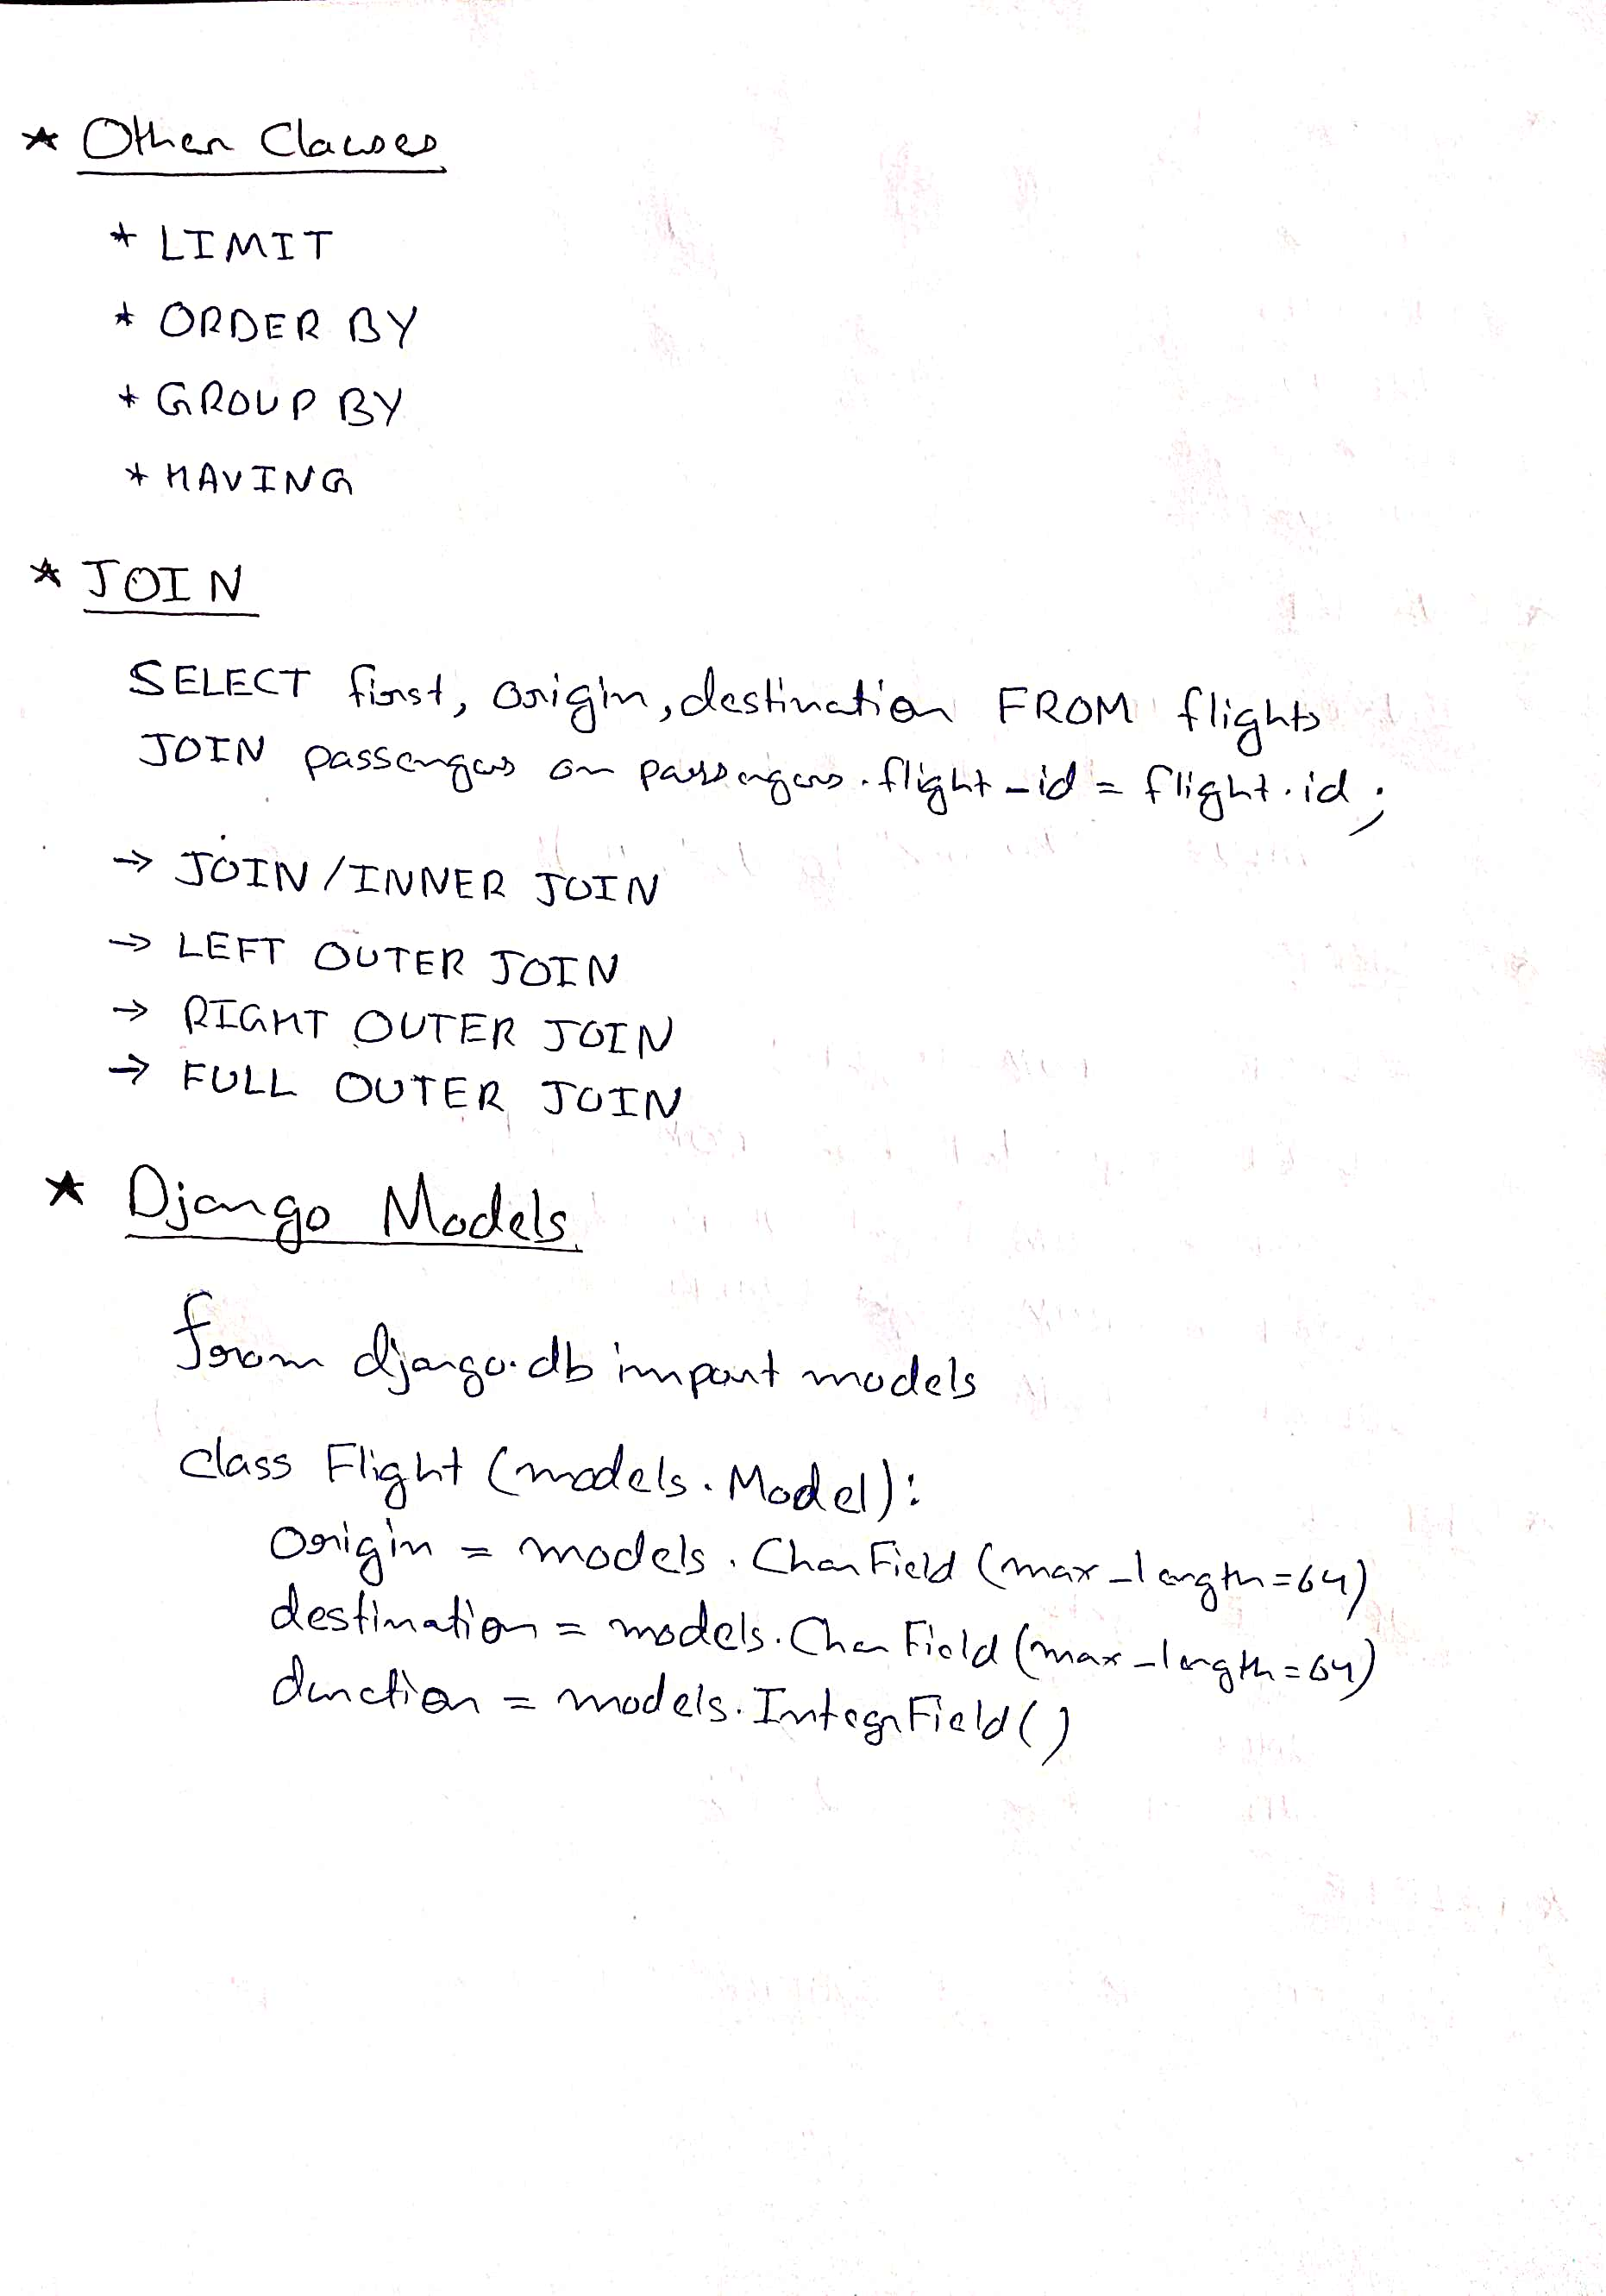 * Other Clauses
* LIMIT
* ORDER BY
* GROUP BY
* HAVING
* JOIN
SELECT first, origin, destination FROM flights
JOIN passengers on passengers.flight_id = flight.id;
→ JOIN/INNER JOIN
→ LEFT OUTER JOIN
→ RIGHT OUTER JOIN
→ FULL OUTER JOIN
* Django Models
from django.db import models
class Flight (models.Model):
origin = models.CharField (max_length=64)
destination = models.CharField (max_length=64)
duration = models.IntegerField()